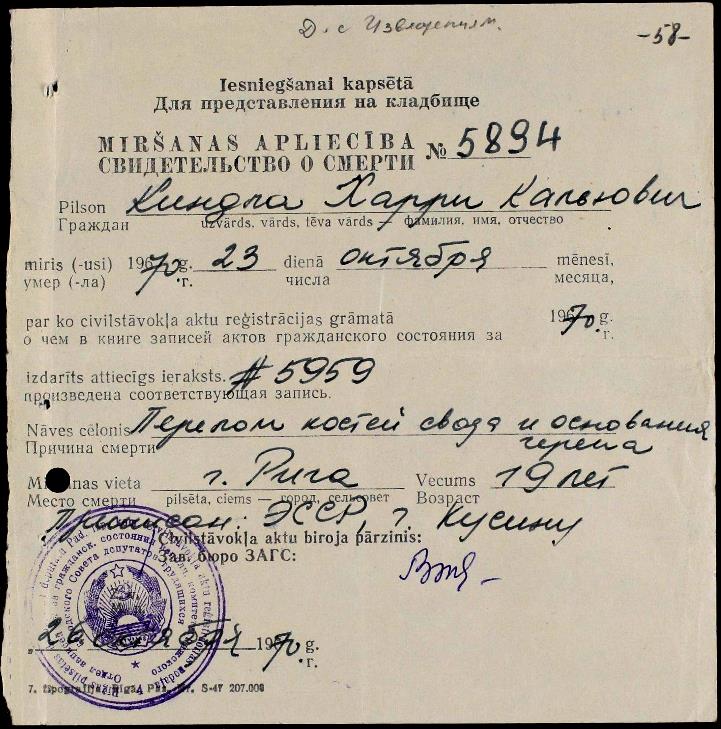 Д. с
-58-
Iesniegšanai kapsētā
Для представления на кладбище
MIRŠANAS APLIECĪBA
СВИДЕТЕЛЬСТВО О СМЕРТИ № 5894
Pilson Киндла Харри Кальювич
Граждан uzvārds, vārds, tēva vārds — фамилия, имя, отчество
miris (-usi) 1970 g. 23 dienā октября mēnesī,
умер (-ла) г. числа месяца,
par ko civilstāvokļa aktu reģistrācijas grāmatā 1970 g.
о чем в книге записей актов гражданского состояния за г.
izdarīts attiecīgs ieraksts. # 5959
произведена соответствующая запись.
Nāves cēlonis Перелом костей свода и основания
Причина смерти черепа
Miršanas vieta г. Рига Vecums 19 лет
Место смерти pilsēta, ciems — город, сельсовет Возраст
Прописан: ЭССР, г. Кусину
Civilstāvokļa aktu biroja pārzinis:
Зав. бюро ЗАГС:
„26 октября 1970 g.
г.
7. tipogrāfija, Rīgā, Pas. Nr. S-47 207.000